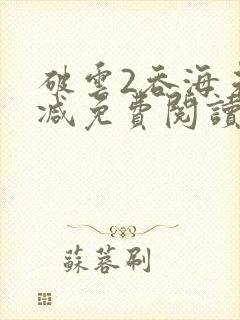 破雲2吞海未刪
減免費閱讀
蘇蓉刷